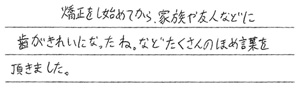 矯正をし始めてから、家族や友人などに
歯がきれいになったね。などたくさんのほめ言葉を
頂きました。